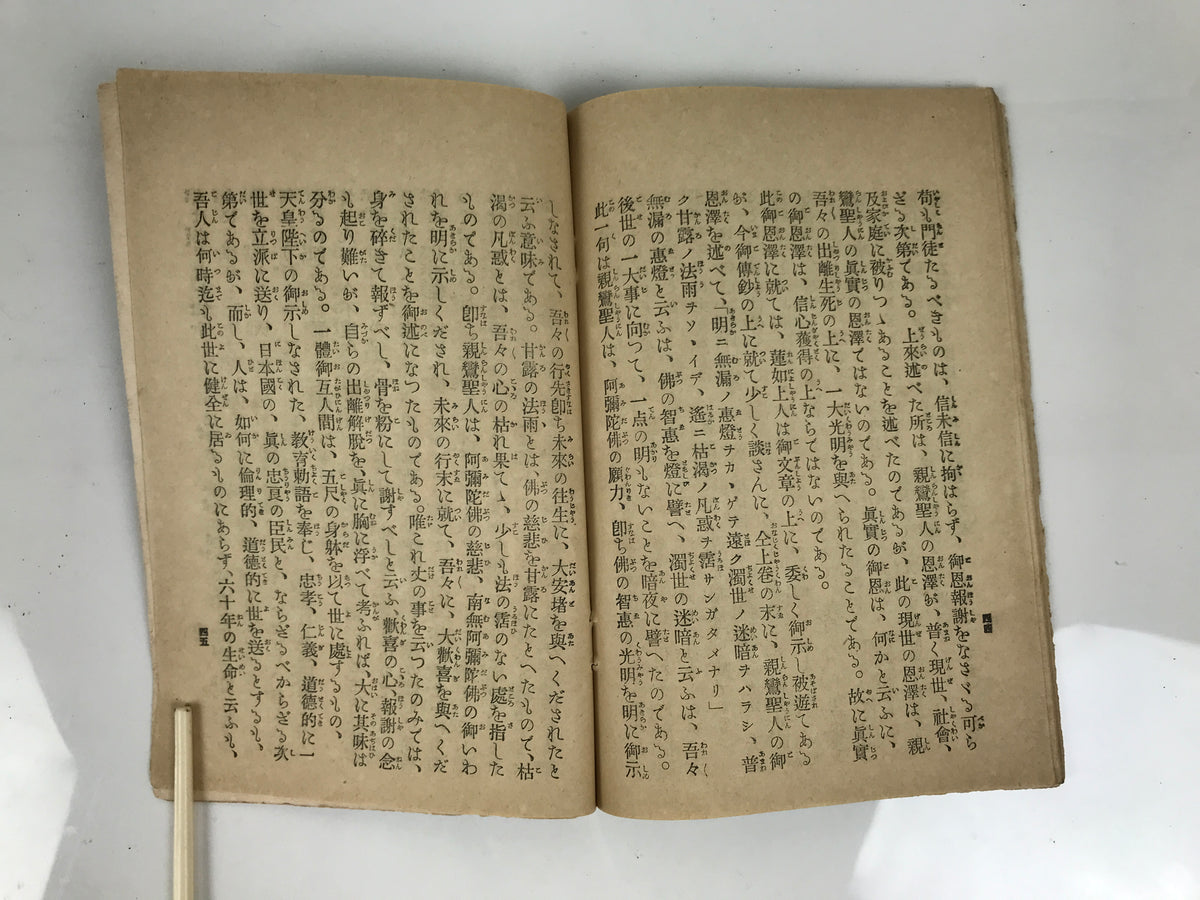 苟も門徒たるべきものは、信未信に拘はらず、御恩報謝をなさゞる可ら
ざる次第である。上來述べた所は、親鸞聖人の恩澤が、普く現世、社會、
及家庭に被りつゝあることを述べたのであるが、此の現世の恩澤は、親
鸞聖人の眞實の恩澤ではないのである。眞實の御恩は、何かと云ふに、
吾々の出離生死の上に、一大光明を與へられたることである。故に眞實
の御恩澤は、信心獲得の上ならではないのである。
此御恩澤に就ては、蓮如上人は御文章の上に、委しく御示し被遊てある
が、今御傳鈔の上に就て少しく談さんに、仝上卷の末に、親鸞聖人の御
恩澤を述べて、「明ニ無漏ノ惠燈ヲカヽゲテ遠ク濁世ノ迷暗ヲハラシ、普
ク甘露ノ法雨ヲソヽイデ、遙ニ枯渇ノ凡惑ヲ霑サンガタメナリ」
無漏の惠燈と云ふは、佛の智惠を燈に譬へ、濁世の迷暗と云ふは、吾々
後世の一大事に向つて、一点の明もないことを暗夜に譬へたのである。
此一句は親鸞聖人は、阿彌陀佛の願力、卽ち佛の智惠の光明を明に御示
四四
しなされて、吾々の行先卽ち未來の往生に、大安堵を與へくだされたと
云ふ意味である。甘露の法雨とは、佛の慈悲を甘露にたとへたもので、枯
渇の凡惑とは、吾々の心の枯れ果てゝ、少しも法の霑のない處を指した
ものである。卽ち親鸞聖人は、阿彌陀佛の慈悲、南無阿彌陀佛の御いわ
れを明に示しくだされ、未來の行末に就て、吾々に、大歡喜を與へくだ
されたことを御述になつたものである。唯これ丈の事を云つたのみでは、
身を碎きて報ずべし、骨を粉にして謝すべしと云ふ、歡喜の心、報謝の念
も起り難いが、自らの出離解脫を、眞に胸に浮べて考ふれば、大に其味は
分るのである。一體御互人間は、五尺の身躰を以て世に處するもの、
天皇陛下の御示しなされた、敎育勅語を奉じ、忠孝、仁義、道德的に一
世を立派に送り、日本國の、眞の忠亮の臣民と、ならざるべからざる次
第であるが、而し、人は、如何に倫理的、道德的に世を送るとするも、
吾人は何時迄も此世に健全に居るものにあらず、六十年の生命と云ふも、
四五